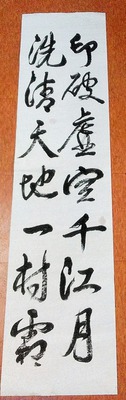 印破虚空千江月
洗清天地一村霜